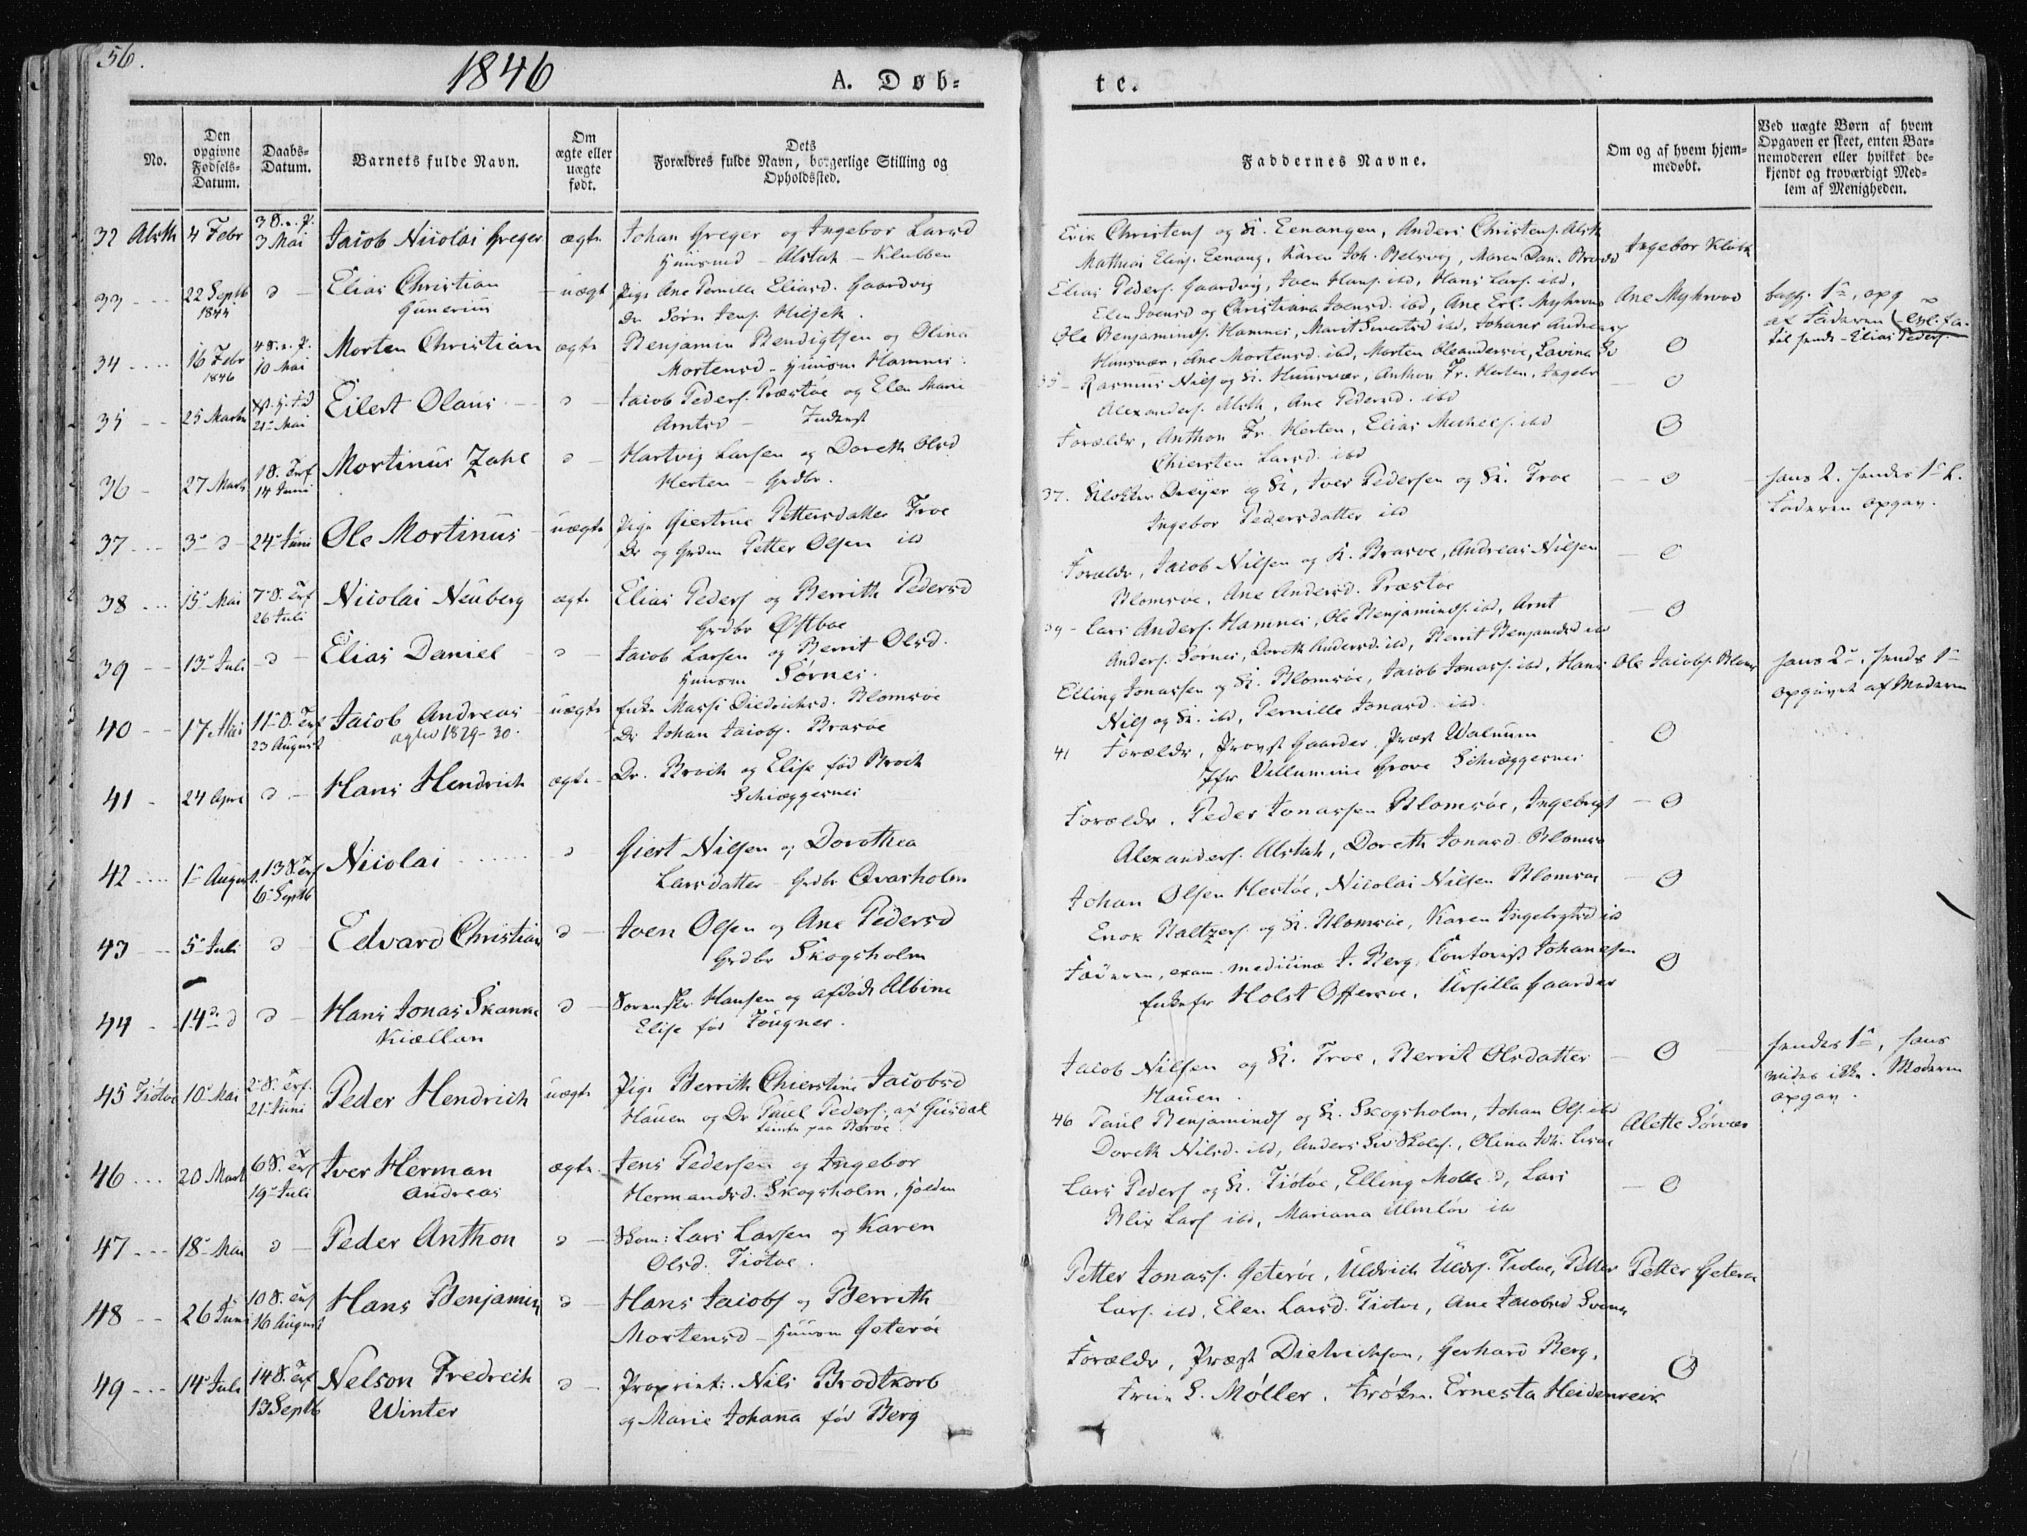 56.
1846
A. Døb-
te.
No.
Den opgivne Fødsels-Datum.
Daabs-Datum.
Barnets fulde Navn.
Om ægte eller uægte født.
Dets Forældres fulde Navn, borgerlige Stilling og Opholdssted.
Faddernes Navne.
Om og af hvem hjem-medøbt.
Ved uægte Børn af hvem Opgaven er skeet, enten Bar-nemoderen eller hvilket be-kjendt og troværdigt Med-lem af Menigheden.
32 Alsth 4 Febr 3 S. e. P. 3 Mai Jacob Nicolai Greger ægte Johan Greger og Ingebor Larsd
Huusmd - Alstah - Klubben
Erik Christens og K. Eenangen, Anders Christens. Alsth
Mathias Elias. Eenang, Karen Joh. Belsvig, Maren Dan.
Ingebor Klubb
33 22 Septb 1844 d Elias Christian Gunerius uægt Pige Ane Pernille Eliasd. Gaardvig
Dr Sørn Jens.
Elias Peders. Gaardvig, Iven Hans. ibd, Hans Lars. ibd,
Elen Ivensd og Christiana Ivensd. ibd, Ane Erl. Myhrvod
Ane Myhrvod
opg af Faderen
Elias Peders.
34 16 Febr 1846 4 S. e. P. 10 Mai Morten Christian ægte Benjamin Bendigtsen og Olina
Mortensd - Huusm Hamnes
Ole Benjamins. Hamnes, Marit Sivertsd ibd, Johanes Andreas.
Huusvær, Ane Mortensd. ibd, Morten Oleandersøe, Lovina
0
35 25 Marts 21 Mai Eilert Olaus d Jacob Peders. Præstøe og Elen Marie
Arntsd - Inderst
35 - Rasmus Nils og K. Huusvær, Anthon Fr. Hesten, Ingebr
Alexanders. Alsth, Ane Pedersd. ibd
0
36 27 Marts 1 S. Trf 14 Juni Mortinus Zahl d Hartvig Larsen og Doreth Olsd
Hesten - Grdbr.
Forældr, Anthon Fr. Hesten, Elias Michels. ibd
Chiersten Larsd. ibd
0
37 3 d 24 Juni Ole Mortinus uægte Pige Giertrue Pettersdatter Troe
Dr og Grdm Petter Olsen ibd
37. Klokker Dreyer og K, Iver Pedersen og K. Troe
Ingebor Pedersdatter ibd
0
hans 2. hendes 1 L.
Faderen opgav.
38 15 Mai 7 S. Trf 26 Juli Nicolai Neuberg ægte Elias Peders og Berrith Pedersd
Grdbr Østboe
Forældr, Jacob Nilsen og K. Brasøe, Andreas Nilsen
Blomsøe, Ane Andersd. Præstøe
0
39 13 Juli d Elias Daniel d Jacob Larsen og Berrit Olsd.
Huusm Sørnes.
39 - Lars Anders. Hamnes, Ole Benjamins. ibd, Arnt
Anders. Sørnes, Doreth Andersd. ibd, Berrit Benjamsd ibd
0
40 17 Mai 11 S. Trf 23 August Jacob Andreas uægte Enke Massi Diedrichsd. Blomsøe
1829-30.
Dr Johan Jacobs. Brasøe
Elling Jonassen og K. Blomsøe, Jacob Jonass. ibd, Hans
Nils og K. ibd, Pernille Jonasd. ibd.
Ole Jacobs. Bloms
hans 2, hends 1
opgivet af Moderen
41 24 April d Hans Hendrich ægte Dr. Broch og Elise fød Broch
Schiæggesnes
41 Forældr, Provst Gaarder, Præst Walnum
Jfr Villumine Grove Schiæggesnes
0
42 1 August 13 S. Trf 6 Septb Nicolai d Giert Nilsen og Dorothea
Larsdatter - Grdbr Qvasholm
Forældr. Peder Jonassen Blomsøe, Ingebrigt
Alexanders. Alstah, Doreth Jonasd. Blomsø
0
43 5 Juli d Edvard Christian d Iven Olsen og Ane Pedersd
Grdbr Skogsholm
Johan Olsen Hestøe, Nicolai Nilsen Blomsøe
Enok Baltzers. og K. Blomsøe, Karen Ingebrigtsd ibd
0
44 14 d d Hans Jonas Skanke Kiællan d Sorenskr Hansen og afdøde Albine
Elise fød Fougner.
Faderen, exam. medicinæ J. Berg, Contorist Johanesen
Enkefr Holst Offersøe, Ursilla Gaarder
0
45 Tiøtøe 10 Mai 2 S. Trf. 21 Juni Peder Hendrich uægte Pige Berrith Chierstine Jacobsd
Hauen og Dr Paul Peders. af Gusdal
Jacob Nilsen og K. Troe, Berrit Olsdatter
Hauen.
0
hendes 1, hans
vides ikke. Moderen
opgav.
46 20 Mart 6 S. Trf 19 Juli Iver Herman Andreas ægte Jens Pedersen og Ingebor
Hermansd. Skogsholm,
46 Paul Benjamins og K. Skogsholm, Johan Ols. ibd
Doreth Nilsd. ibd, Anders
Alette Sørvær
47 18 Mai d Peder Anthon d Skom: Lars Larsen og Karen
Olsd. Tiøtøe.
Lars Peders og K. Tiøtøe, Elling, Lars
Blix Lars ibd, Mariana
0
48 26 Juni 10 S. Trf 16 August Hans Benjamin d Hans Jacobs og Berrith
Mortensd - Huusm Geterøe
Petter Jonass. Geterøe, Uldrich Uldrs. Tiøtøe, Petter
Lars. ibd, Elen Larsd. Tiøtøe, Ane Jacobsd
Petter Geterøe
49 14 Juli 14 S. Trf 13 Septb Nelson Fredrich Winter d Proprietr: Nils Brodtkorb
og Marie Johana fød Berg
Forældr, Præst Dietrichson, Gerhard Berg,
Frue S. Møller. Frøkn. Ernesta Heidenreich
0